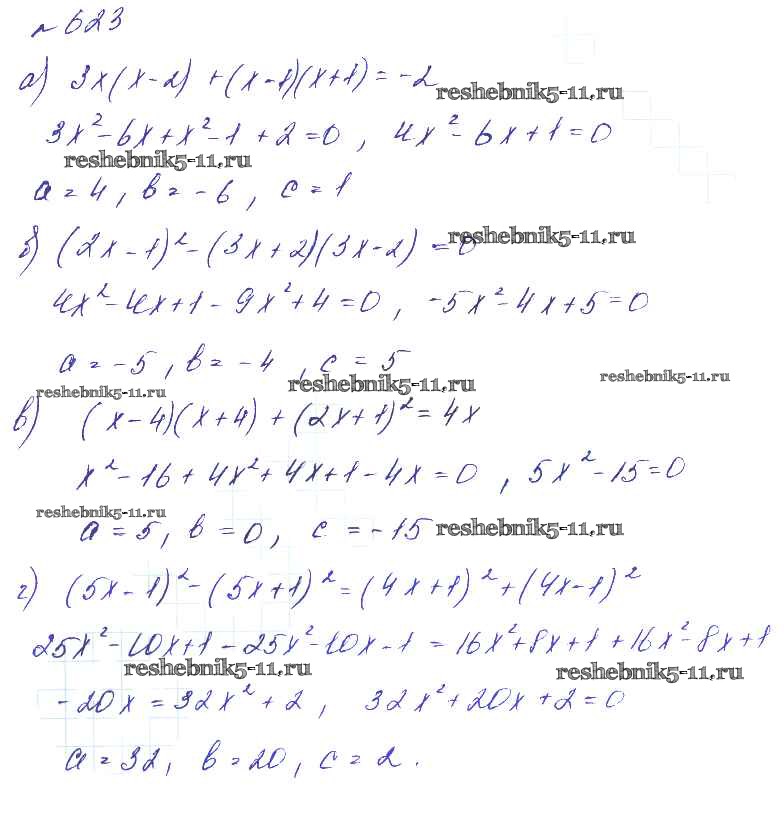 № 623
а) 3x(x-2) + (x-1)(x+1) = -2
reshebnik5-11.ru
3x² - 6x + x² - 1 + 2 = 0 , 4x² - 6x + 1 = 0
reshebnik5-11.ru
a = 4 , b = -6 , c = 1
б) (2x - 1)² - (3x + 2)(3x - 2) = 0
reshebnik5-11.ru
4x² - 4x + 1 - 9x² + 4 = 0 , -5x² - 4x + 5 = 0
a = -5 , b = -4 , c = 5
reshebnik5-11.ru reshebnik5-11.ru reshebnik5-11.ru
в) (x - 4)(x + 4) + (2x + 1)² = 4x
x² - 16 + 4x² + 4x + 1 - 4x = 0 , 5x² - 15 = 0
reshebnik5-11.ru
a = 5 , b = 0 , c = -15
reshebnik5-11.ru
г) (5x - 1)² - (5x + 1)² = (4x + 1)² + (4x - 1)²
25x² - 10x + 1 - 25x² - 10x - 1 = 16x² + 8x + 1 + 16x² - 8x + 1
reshebnik5-11.ru reshebnik5-11.ru
-20x = 32x² + 2 , 32x² + 20x + 2 = 0
a = 32 , b = 20 , c = 2 .